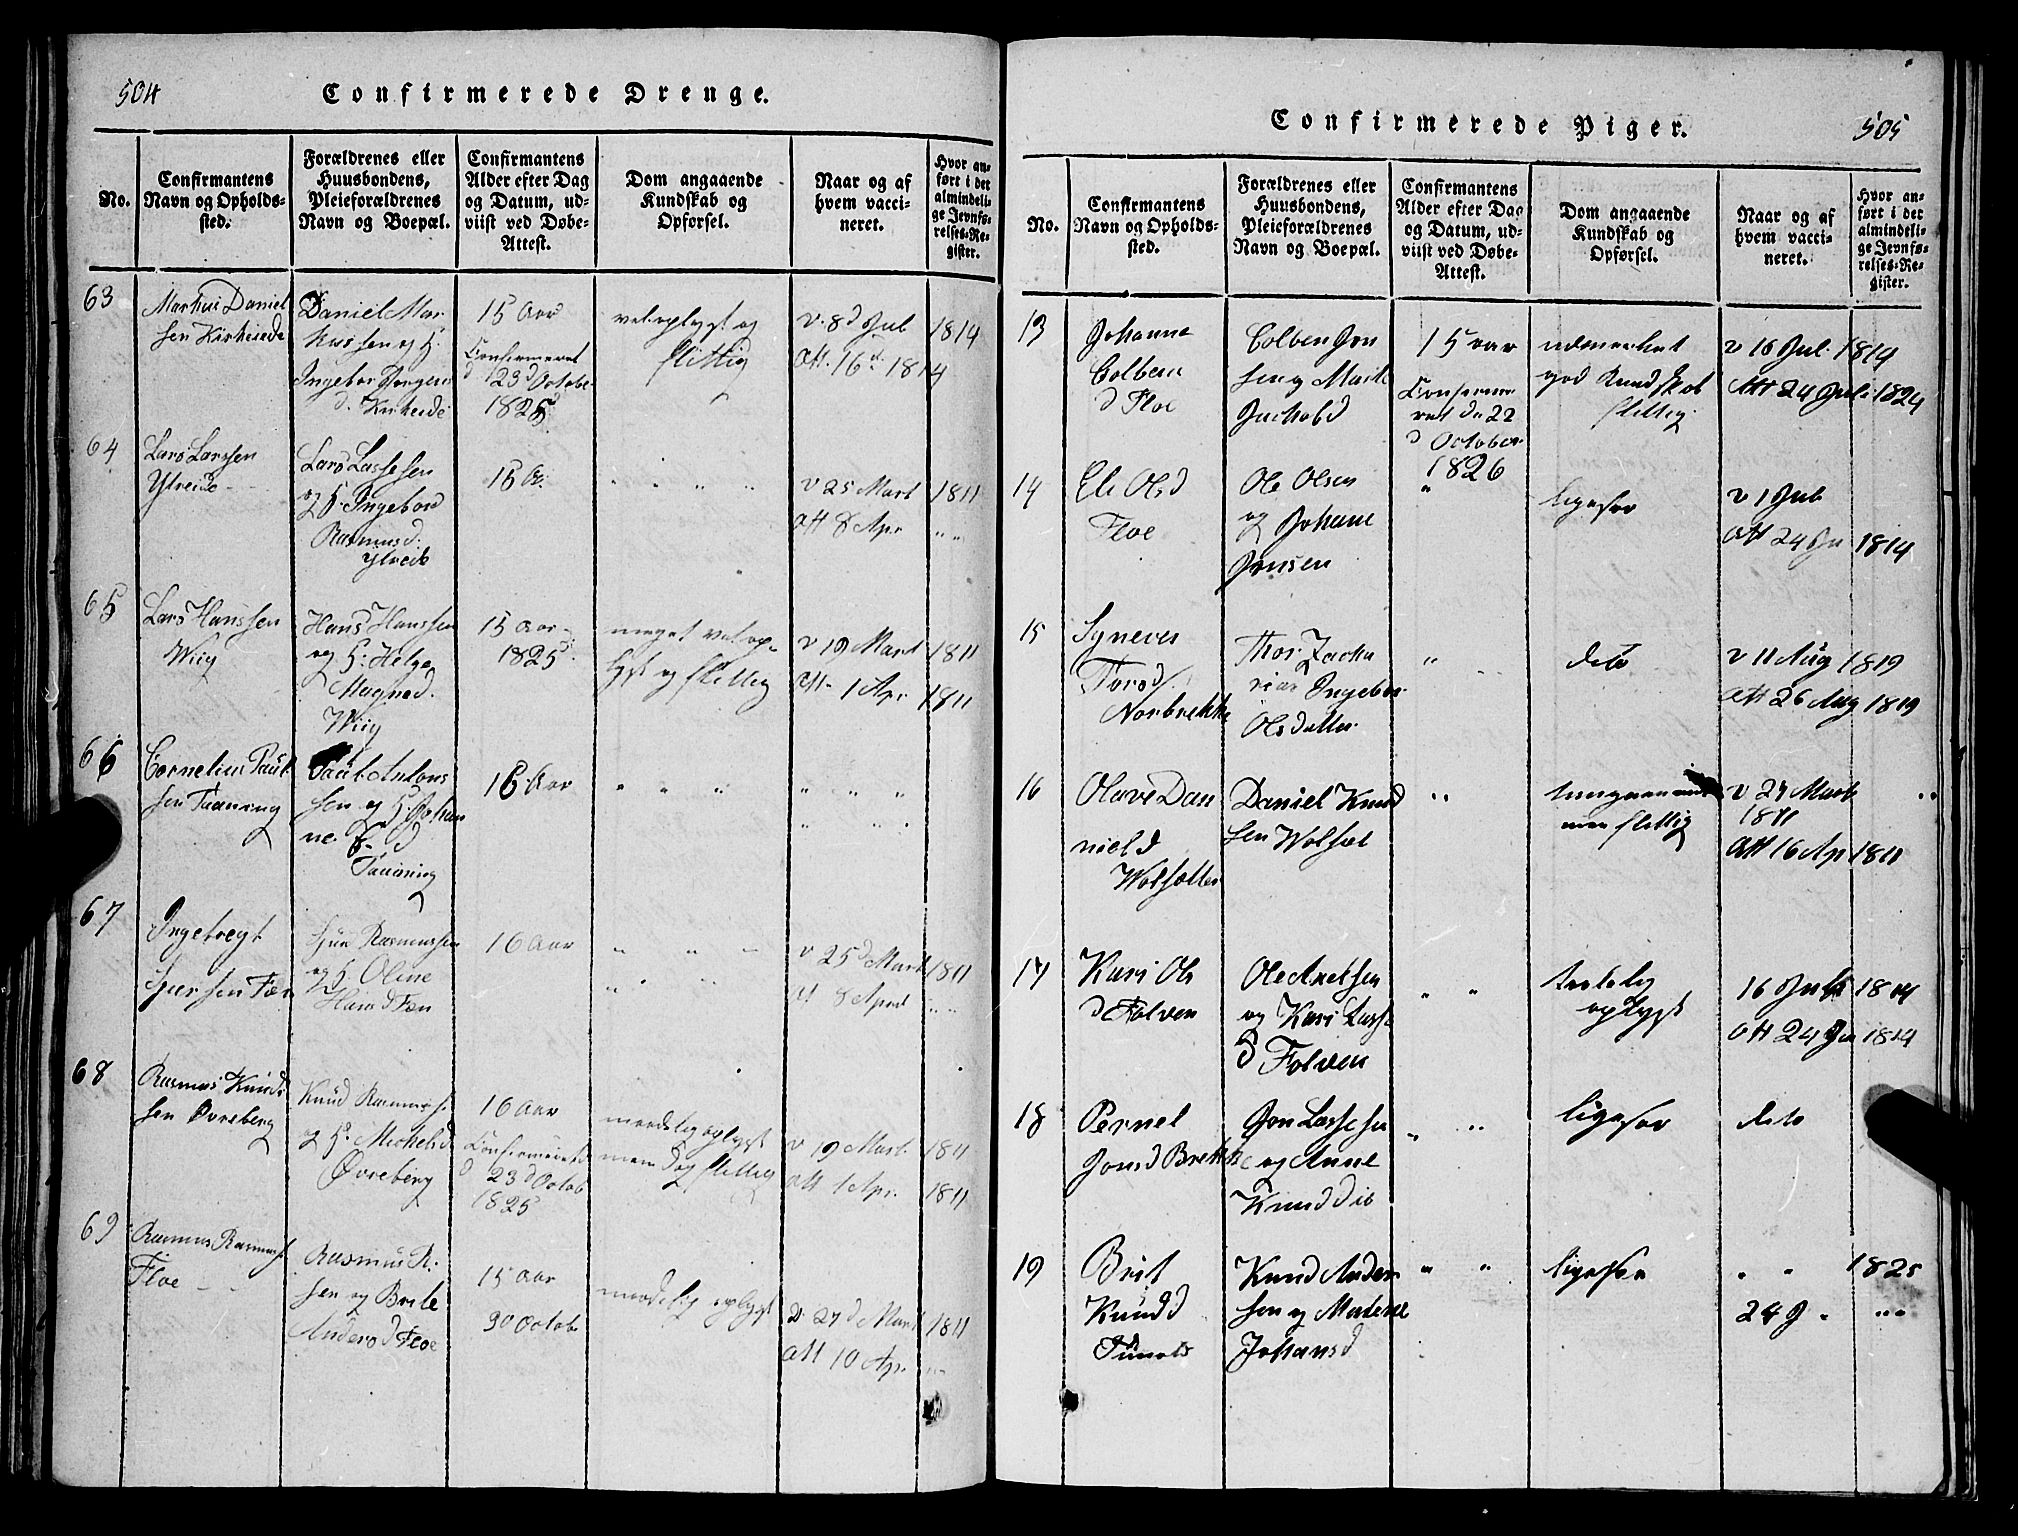 504
Confirmerede Drenge.
No.
Confirmantens
Navn og Opholds-
sted.
Forældrenes eller
Huusbondens,
Pleieforældrenes
Navn og Boepæl.
Confirmantens
Alder efter Dag
og Datum, ud-
viist ved Døbe-
Attest.
Dom angaaende
Kundskab og
Opførsel.
Naar og af
hvem vacci-
neret.
Hvor an-
ført i det
almindeli-
ge Jevnfø-
relses-Re-
gister.
63
Daniel
sen
Daniel Mar
sen og H.
Ingebor
d.
15 Aar
Confirmeret
d 23d Octobr
1825
vel oplyst og
flittig
v. 8d Jul
att. 16d 1814
1814
64
Lars Larssen
Lars Lassesen
og H. Ingebor
Rasmusd.
16 A.
v 25 Mart
att 8 Apr
1811
65
Lars Hanssen
Wiig
Hans Hanssen
og H: Helge
Magnsd.
Wiig
15 Aar
1825
meget vel op-
lyst og flittig
v 19 Mart
att. 1 Apr
1811
1811
66
Cornelius Paul
sen Taaning
Paul Antons
sen og H. Johan
ne
Taaning
16 Aar
67
Ingebregt
sen
Rasmussen
og H Oline
Hans d
16 Aar
v 25d Mart
at 8 April
1811
68
Rasmus Knuds
sen Øvreberg
Knud Rasmuss.
og H. Michelsd
Øvreberg
16 Aar
Confirmeret
d 23d Octob
1825
maadelig oplyst
men dog flittig
v 19 Mart.
att 1 Apr.
1811
1811
69
Rasmus Rasmuss.
Floe
Rasmus R.
sen og Brite
Anders d Floe
15 Aar
30 Octob
maadelig oplyst
v. 27d Mart
att 10 Apr.
1811
Confirmerede Piger.
505
No.
Confirmantens
Navn og Opholds-
sted.
Forældrenes eller
Huusbondens,
Pleieforældrenes
Navn og Boepæl.
Confirmantens
Alder efter Dag
og Datum, ud-
viist ved Døbe-
Attest.
Dom angaaende
Kundskab og
Opførsel.
Naar og af
hvem vacci-
neret.
Hvor an-
ført i det
almindeli-
ge Jevnfø-
relses-Re-
gister.
13
Johanne
Colben
d Floe
Colben Jon
sen og
15 aar
Confirme
ret d. 22
d October
1826
udmerket
god Kundskab
flittig.
v 16 Jul. 1814
Att 24 Juli 1824
14
Ele Olsd
Floe
Ole Olsen
og Johane
Jonsen
ligesaa
v 1 Jul
att 24 Ju
1814
15
Synneves
Torsd
Norbrekke
Thor Zacha
rias Ingebor
Olsdatter
dito
v 11 Aug 1819
att 26 Aug 1819
16
Olave Dan
nield
Daniel Knud
sen Wolsæt
men flittig
v 27 Mart
1811
att 16 Apr 1811
17
Kari Ols
d Folven
Ole
og Kari Lasse
d Folven
oplyst
16 Juli 1814
att 24 Ju 1814
18
Pernel
Jonsd Brekke
Jon Lassesen
og Anne
Knudd
ligesaa
dito
19
Brit
Knudd
Knud Anders
sen og
Johansd
ligesaa
24 J
1825